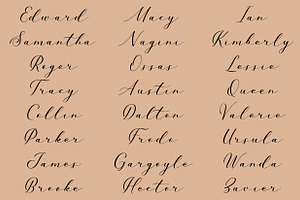 Edward Macy Ian
Samantha Nagini Kimberly
Roger Ossas Lessie
Tracy Austin Queen
Collin Dalton Valorie
Parker Frodo Ursula
James Gargoyle Wanda
Brooke Hector Xavier